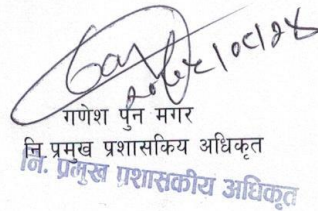 गणेश पुन मगर
नि.प्रमुख प्रशासकिय अधिकृत
नि. प्रमुख प्रशासकीय अधिकृत